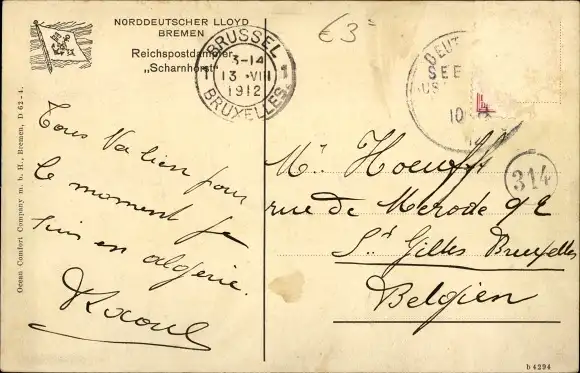 NORDDEUTSCHER LLOYD
BREMEN
Reichspostdampfer
„Scharnhorst"
BRUSSEL
13-14
1 13 VIII 1
1912
BRUXELLES
€3
DEUT
SEE
10
314
Tous va bien pour
le moment je
suis en algérie.
Raoul
Mr. Hoeuff
rue de Merode 92
St Gilles Bruxelles
Belgien
Ocean Comfort Company m. b. H., Bremen, D 62-4.
b 4294